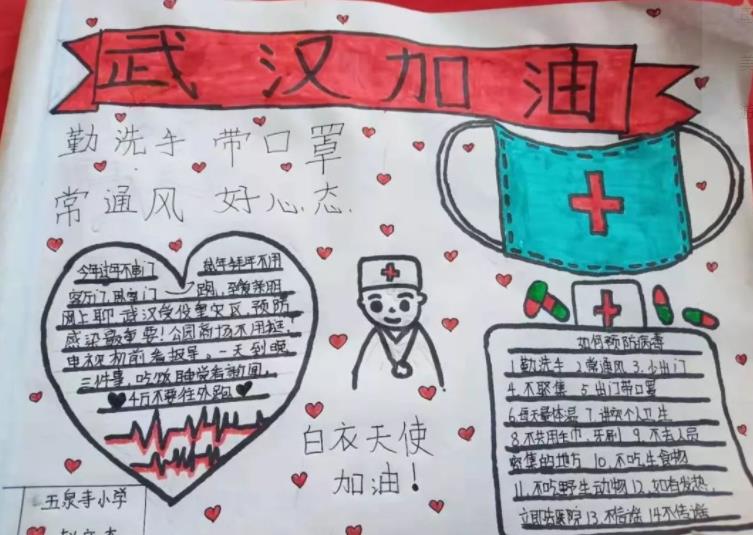 武汉加油
勤洗手 带口罩
常通风 好心态
今年过年不串门
网上聊 武汉受役重灾区,预防
感染最重要!公园商场不用逛,
电视机前看报导。一天到晚
三件事,吃饭睡觉看新闻,
千万不要往外跑
白衣天使
加油!
如何预防病毒
1勤洗手 2.常通风 3.少出门
4.不聚集 5出门带口罩
6每天量体温 7.讲究个人卫生
8.不共用毛巾、牙刷 9.不去人员
密集的地方 10.不吃生食物
11.不吃野生动物 12.如有发热,
立即去医院 13.不信谣 14不传谣
五泉寺小学